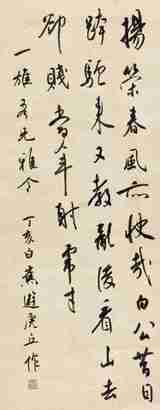 揚策春風亦快哉白公昔日
跨駝來又教亂後看山去
卻賤當年射虎才
一雄吾兄雅令 丁亥白蕉遊虎丘作